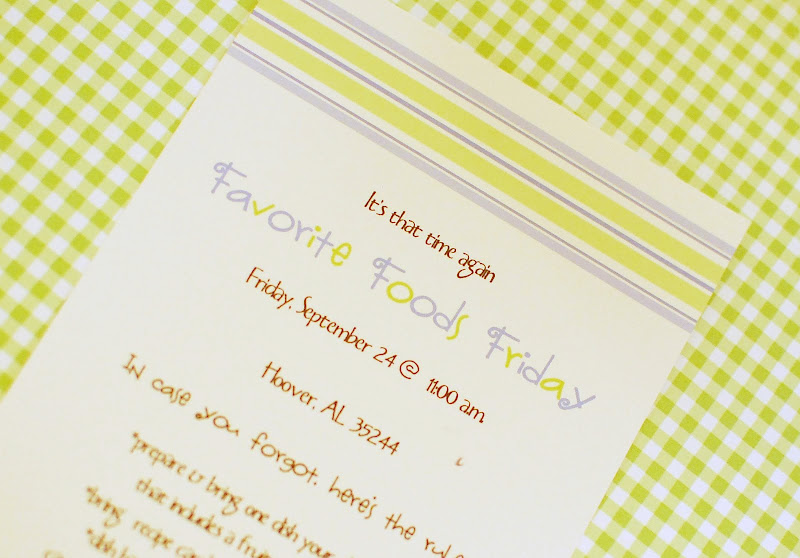 It's that time again
Favorite Foods Friday
Friday, September 24 @ 11:00 am.
Hoover, AL 35244
In case you forgot, here's the
*prepare & bring one dish your
that includes a
*bring recipe